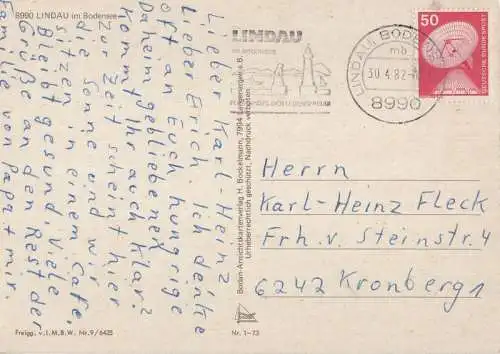 8990 LINDAU im Bodensee
Lieber Karl-Heinz
Lieber Erich. Ich denke
oft an Euch hungrige
Daheimgebliebene.
Kommt Ihr auch klar?
Zur Zeit scheint hier
die Sonne und wir
sitzen in einem Cafe.
Bleibt gesund, viele
Grüße an den Rest der
Familie von Papa + mir.
Freigg. v. I. M. B. W. Nr. 9/6425
Bodan-Ansichtskartenverlag H. Bockelmann, 7994 Langenargen a. B.
Urheberrechtlich geschützt, Nachdruck verboten
Nr. 1-73
LINDAU
IM BODENSEE
LINDAU, BODENSEE
mb
30.4.82
8990
50
DEUTSCHE BUNDESPOST
Herrn
Karl-Heinz Fleck
Frh. v. Steinstr. 4
6242 Kronberg 1